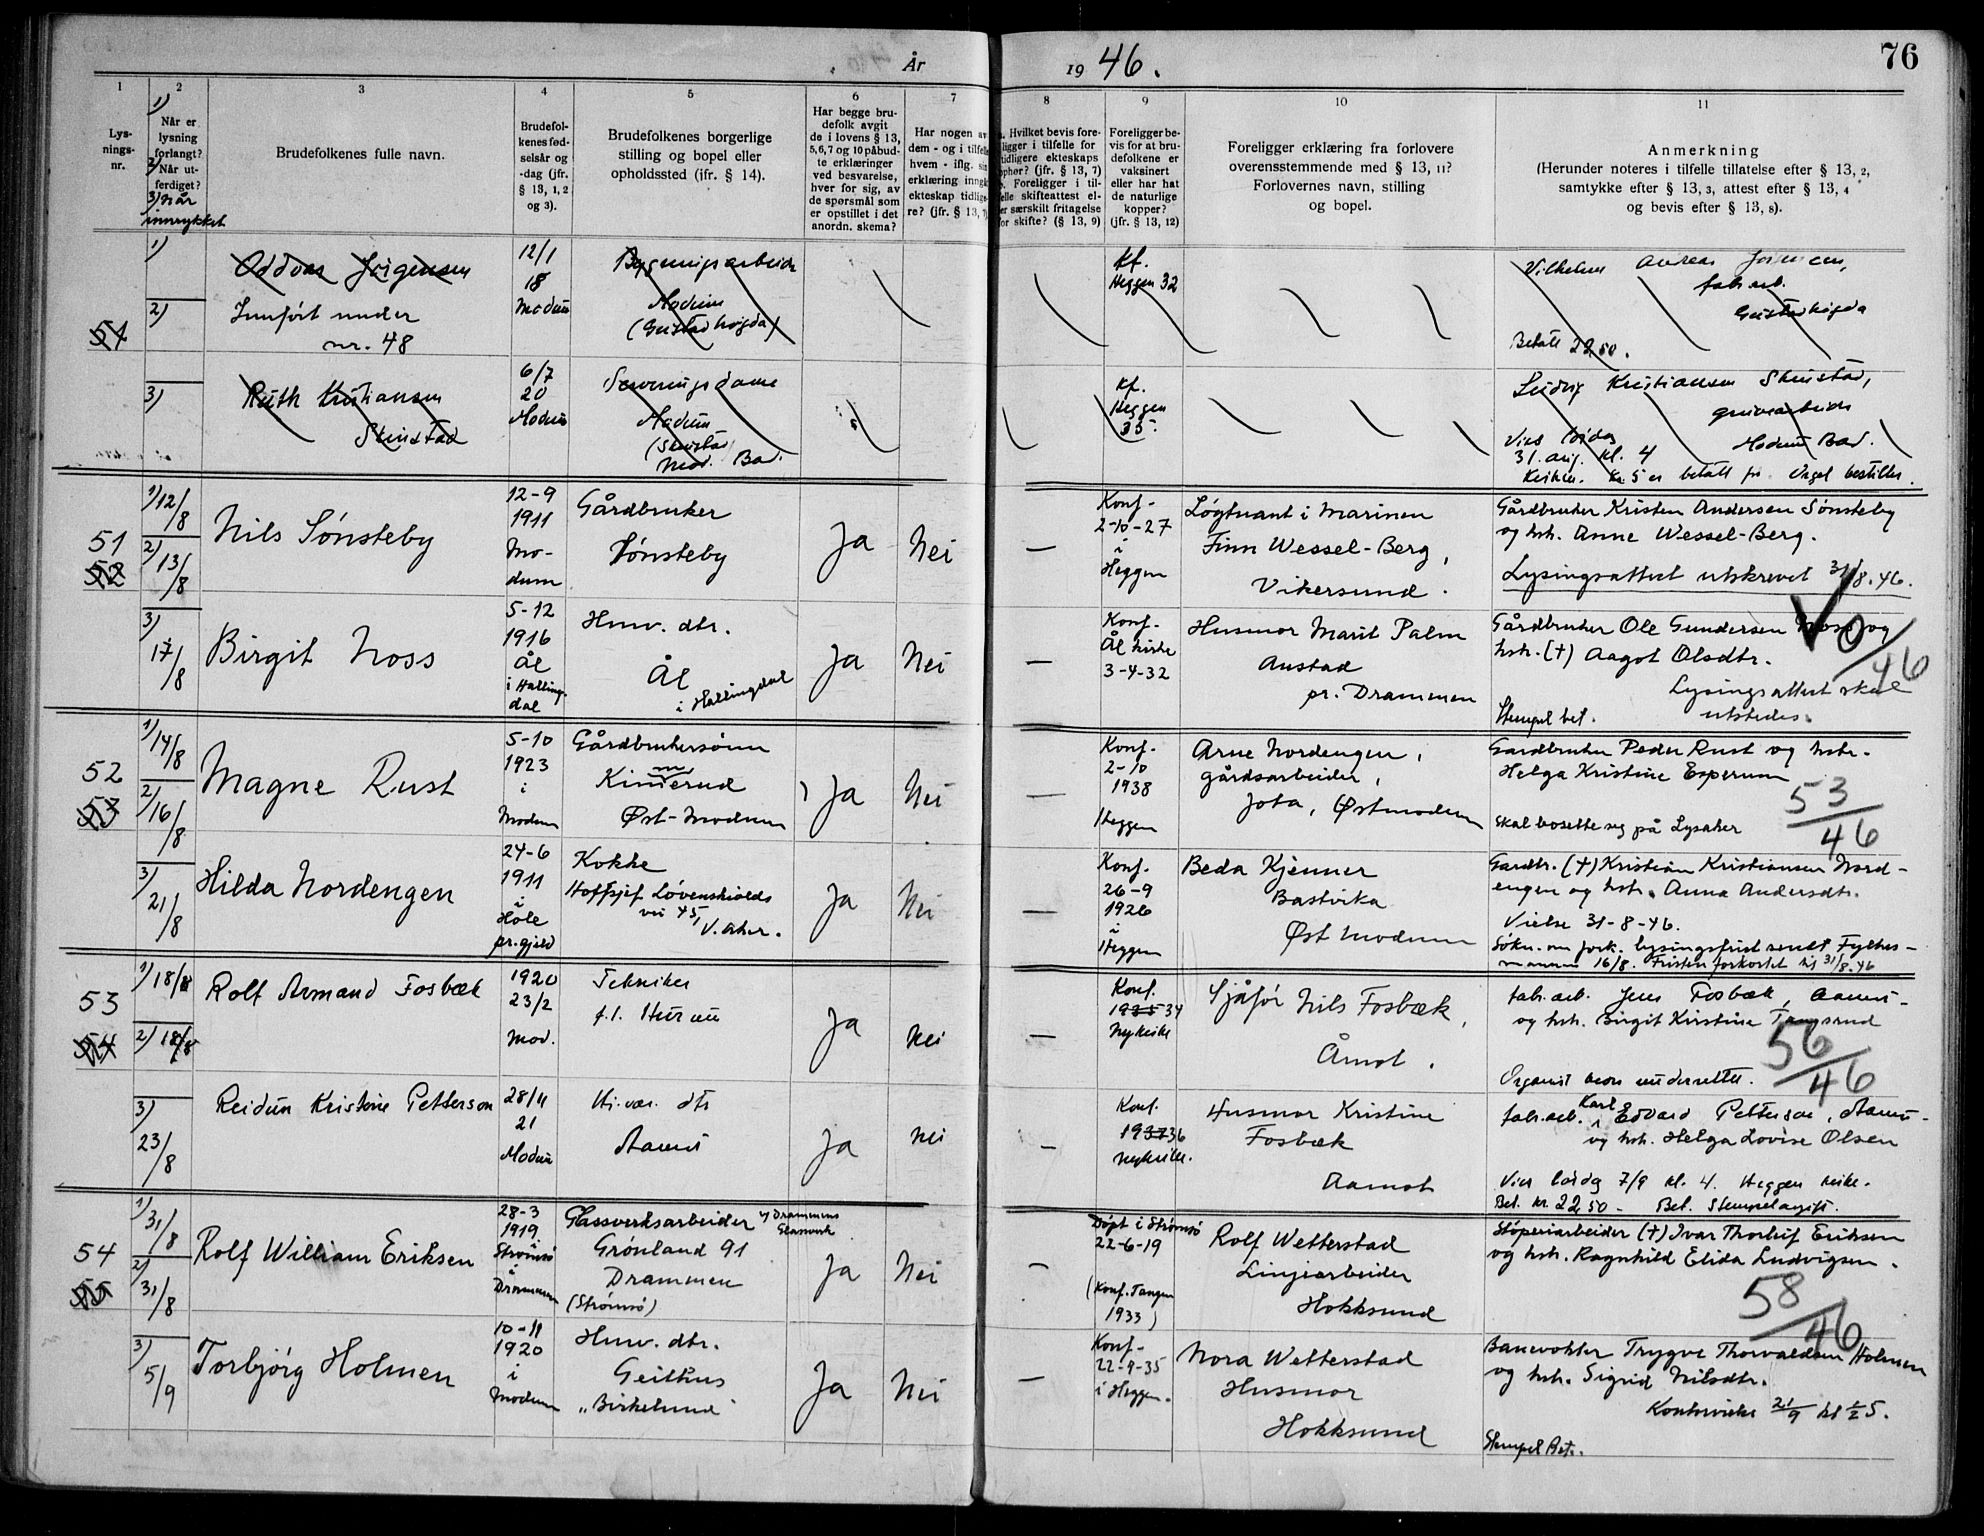 År 1946.
76
1
Lys-
nings-
nr.
2
1)
Når er
lysning
forlangt?
2)
Når ut-
ferdiget?
3) Når
innrykket
3
Brudefolkenes fulle navn.
4
Brudefol-
kenes fød-
selsår og
-dag (jfr.
§ 13, 1, 2
og 3).
5
Brudefolkenes borgerlige
stilling og bopel eller
opholdssted (jfr. § 14).
6
Har begge bru-
defolk avgit
de i lovens § 13,
5, 6, 7 og 10 påbud-
te erklæringer
ved besvarelse,
hver for sig, av
de spørsmål som
er opstillet i det
anordn. skema?
7
Har nogen av
dem - og i tilfelle
hvem - iflg. sin
erklæring inngå
ekteskap tidlige-
re? (jfr. § 13, 7)
8
Hvilket bevis fore-
ligger i tilfelle for
tidligere ekteskaps
ophør? (jfr. § 13, 7)
Foreligger i til-
felle skifteattest el-
er særskilt fritagelse
for skifte? (§ 13, 9)
9
Foreligger be-
vis for at bru-
defolkene er
vaksinert
eller har hat
de naturlige
kopper?
(jfr. § 13, 12)
10
Foreligger erklæring fra forlovere
overensstemmende med § 13, 11?
Forlovernes navn, stilling
og bopel.
11
Anmerkning
(Herunder noteres i tilfelle tillatelse efter § 13, 2,
samtykke efter § 13, 3, attest efter § 13, 4
og bevis efter § 13, 8).
51
1)
2)
3)
Oddvar Jørgensen
Innført under
nr. 48
12/1
18
Modum
Bygningsarbeider
Modum
(Gustadhøgda)
Kf.
Heggen 32
Vilhelm Andreas Jørgensen,
fabr.arb.
Gustadhøgda
Betalt 22,50.
Ruth Kristiansen
Skinstad
6/7
20
Modum
Serveringsdame
Modum
(Skinstad
Mod. Bad.
Kf.
Heggen
35
Ludvig Kristiansen Skinstad,
gruvearbeider
Modum Bad.
Vies lørdag
31. aug. kl. 4
Kr. 5 er betalt for Orgel bestilles.
51
52
1) 12/8
2) 13/8
3) 17/8
Nils Sønsteby
12-9
1911
Mo-
dum
Gårdbruker
Sønsteby
Ja
Nei
—
Konf.
2-10-27
i
Heggen
Løytnant i Marinen
Finn Wessel-Berg,
Vikersund.
Gårdbruker Kristen Andersen Sønsteby
og hstr. Anne Wessel-Berg.
Lysingsattest utskrevet 31/8.46.
Birgit Noss
5-12
1916
Ål
i Halling-
dal
Hmv. dtr.
Ål
i Hallingdal
Ja
Nei
—
Konf.
Ål kirke
3-4-32
Husmor Marit Palm
Austad
pr. Drammen
Gårdbruker Ole Gundersen Noss og
hstr. (+) Aagot Olsdtr.
V 0/46
Lysingsattest skal
utstedes.
Stempel bet.
52
53
1) 14/8
2) 16/8
3) 21/8
Magne Rust
5-10
1923
i
Modum
Gårdbrukersønn
Kinnerud
Øst-Modum
Ja
Nei
—
Konf.
2-10
1938
Heggen
Arne Nordengen,
gårdsarbeider,
Jota, Østmodum
Gardbruker Peder Rust og hstr.
Helga Kristine Esperum
Skal bosette seg på Lysaker
53/46
Hilda Nordengen
24-6
1911
i
Hole
pr.gjeld
Kokke
Hoffsjef Løvenskiolds
vei 45,
V. Aker.
Ja
Nei
—
Konf.
26-9
1926
i
Heggen
Beda Kjenner
Bastvika
Øst Modum
Gardbr. (+) Kristian Kristiansen Nord-
engen og hstr. Anna Andersdtr.
Vielse 31-8-46.
Søkn. om fork. lysingsfrist sendt Fylkes-
mannen 16/8. Fristen forkortet til 31/8.46
53
54
1) 18/8
2) 18/8
3) 23/8
Rolf Armand Fosbæk
1920
23/2
Mod.
Tekniker
f.t. Hurum
Ja
Nei
—
Konf.
1935 34
Nykirke
Sjåfør Nils Fosbæk,
Åmot.
fabr.arb. Jens Fosbæk, Aamot
og hstr. Birgit Kirstine
56/46
Organist bones underrettet.
Reidun Kristine Petterson
28/11
21
Modum
Hj.vær. dtr
Aamot
Ja
Nei
—
Konf.
1937 36
Nykirke.
Husmor Kristine
Fosbæk
Aamot
fabr.arb. Karl Edvard Petterson, Aamot
og hstr. Helga Lovise Olsen
Vies lørdag 7/9 kl. 4. Heggen kirke.
Bet. kr. 22 50 - Bet. Stempelavgift.
54
55
1) 31/8
2) 31/8
3) 5/9
Rolf William Eriksen
28-3
1919
Strømsø
i
Drammen
Glassverksarbeider v/ Drammens
Glassverk
Grønland 91
Drammen
(Strømsø)
Ja
Nei
—
Døpt i Strømsø
22-6-19
(Konf. Tangen
1933)
Rolf Wetterstad
Linjearbeider
Hokksund
Støperiarbeider (+) Ivar Thorleif Eriksen
og hstr. Ragnhild Elida Ludvigsen.
58/46
Torbjørg Holmen
10-11
1920
i
Modum
Hmv. dtr.
Geithus
"Birkelund"
Ja
Nei
—
Konf.
22-9-35
i Heggen.
Nora Wetterstad
Husmor
Hokksund
Banevokter Trygve Thorvaldsen Holmen
og hstr. Sigrid Nilsdtr.
21/9 kl 1/2 5.
Stempel Bet.